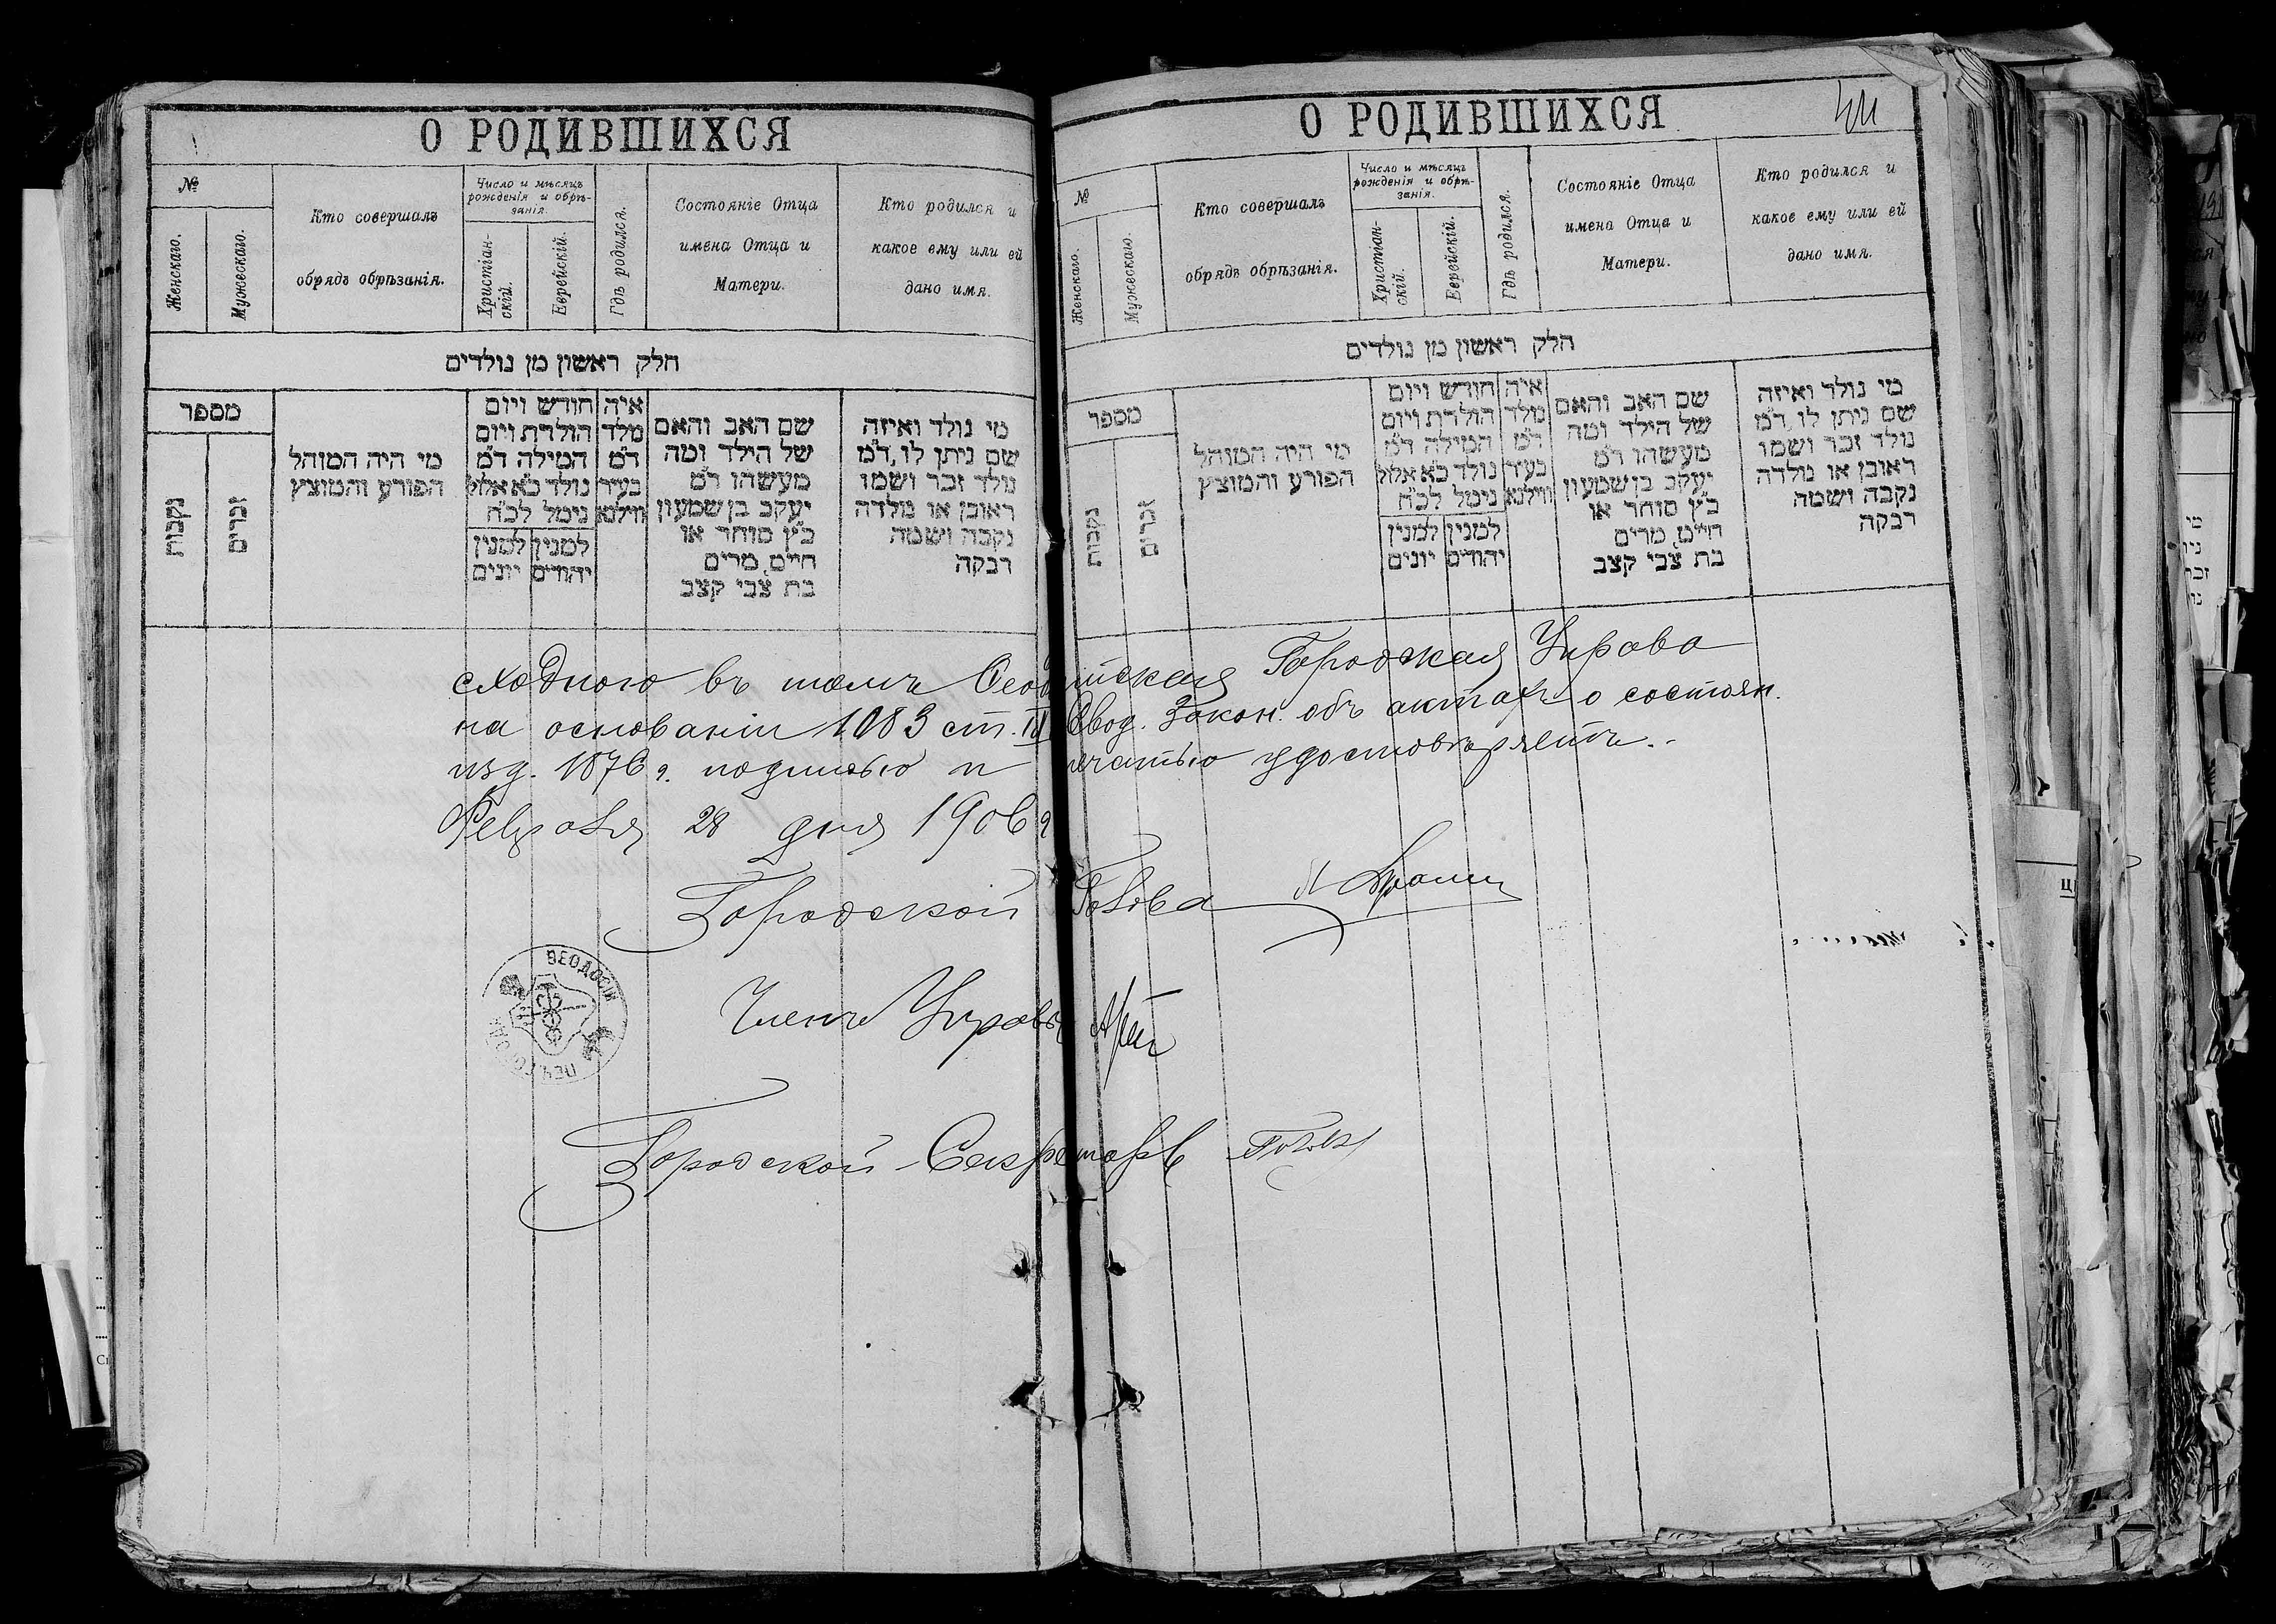 О РОДИВШИХСЯ
№
Женскаго.
Мужескаго.
Кто совершалъ
обрядъ обрѣзанія.
Число и мѣсяцъ
рожденія и обрѣ-
занія.
Христіан-
скій.
Еврейскій.
Гдѣ родился.
Состояніе Отца
имена Отца и
Матери.
Кто родился и
какое ему или ей
дано имя.
חלק ראשון מן נולדים
מספר
נקבות
זכרים
מי היה המוהל
הפורע והמוצץ
חודש ויום
הולדת ויום
המילה ד"מ
נולד כ"א אלול
נימל לכ"ח
למנין יהודים
למנין יונים
איה
מלד
ד"מ
בעיר
ווילנא
שם האב והאם
של הילד ומה
מעשהו ד"מ
יעקב בן שמעון
כ"ץ סוחר או
חייט, מרים
בת צבי קצב
מי נולד ואיזה
שם ניתן לו, ד"מ
נולד זכר ושמו
ראובן או נולדה
נקבה ושמה
רבקה
О РОДИВШИХСЯ
№
Женскаго.
Мужескаго.
Кто совершалъ
обрядъ обрѣзанія.
Число и мѣсяцъ
рожденія и обрѣ-
занія.
Христіан-
скій.
Еврейскій.
Гдѣ родился.
Состояніе Отца
имена Отца и
Матери.
Кто родился и
какое ему или ей
дано имя.
חלק ראשון מן נולדים
מספר
נקבות
זכרים
מי היה המוהל
הפורע והמוצץ
חודש ויום
הולדת ויום
המילה ד"מ
נולד כ"א אלול
נימל לכ"ח
למנין יהודים
למנין יונים
איה
מלד
ד"מ
בעיר
ווילנא
שם האב והאם
של הילד ומה
מעשהו ד"מ
יעקב בן שמעון
כ"ץ סוחר או
חייט, מרים
בת צבי קצב
מי נולד ואיזה
שם ניתן לו, ד"מ
נולד זכר ושמו
ראובן או נולדה
נקבה ושמה
רבקה
сходного въ томъ Ѳеодосійская Городская Управа
на основаніи 1083 ст. Свод. Закон. объ актахъ о состоян.
изд. 1876 г. подписью и печатью удостовѣряетъ.
Февраля 28 дня 1906 г
Городской Голова
Членъ Управы
Городской Секретарь
ѲЕОДОСІЙ
ПЕЧ. ГОРОД